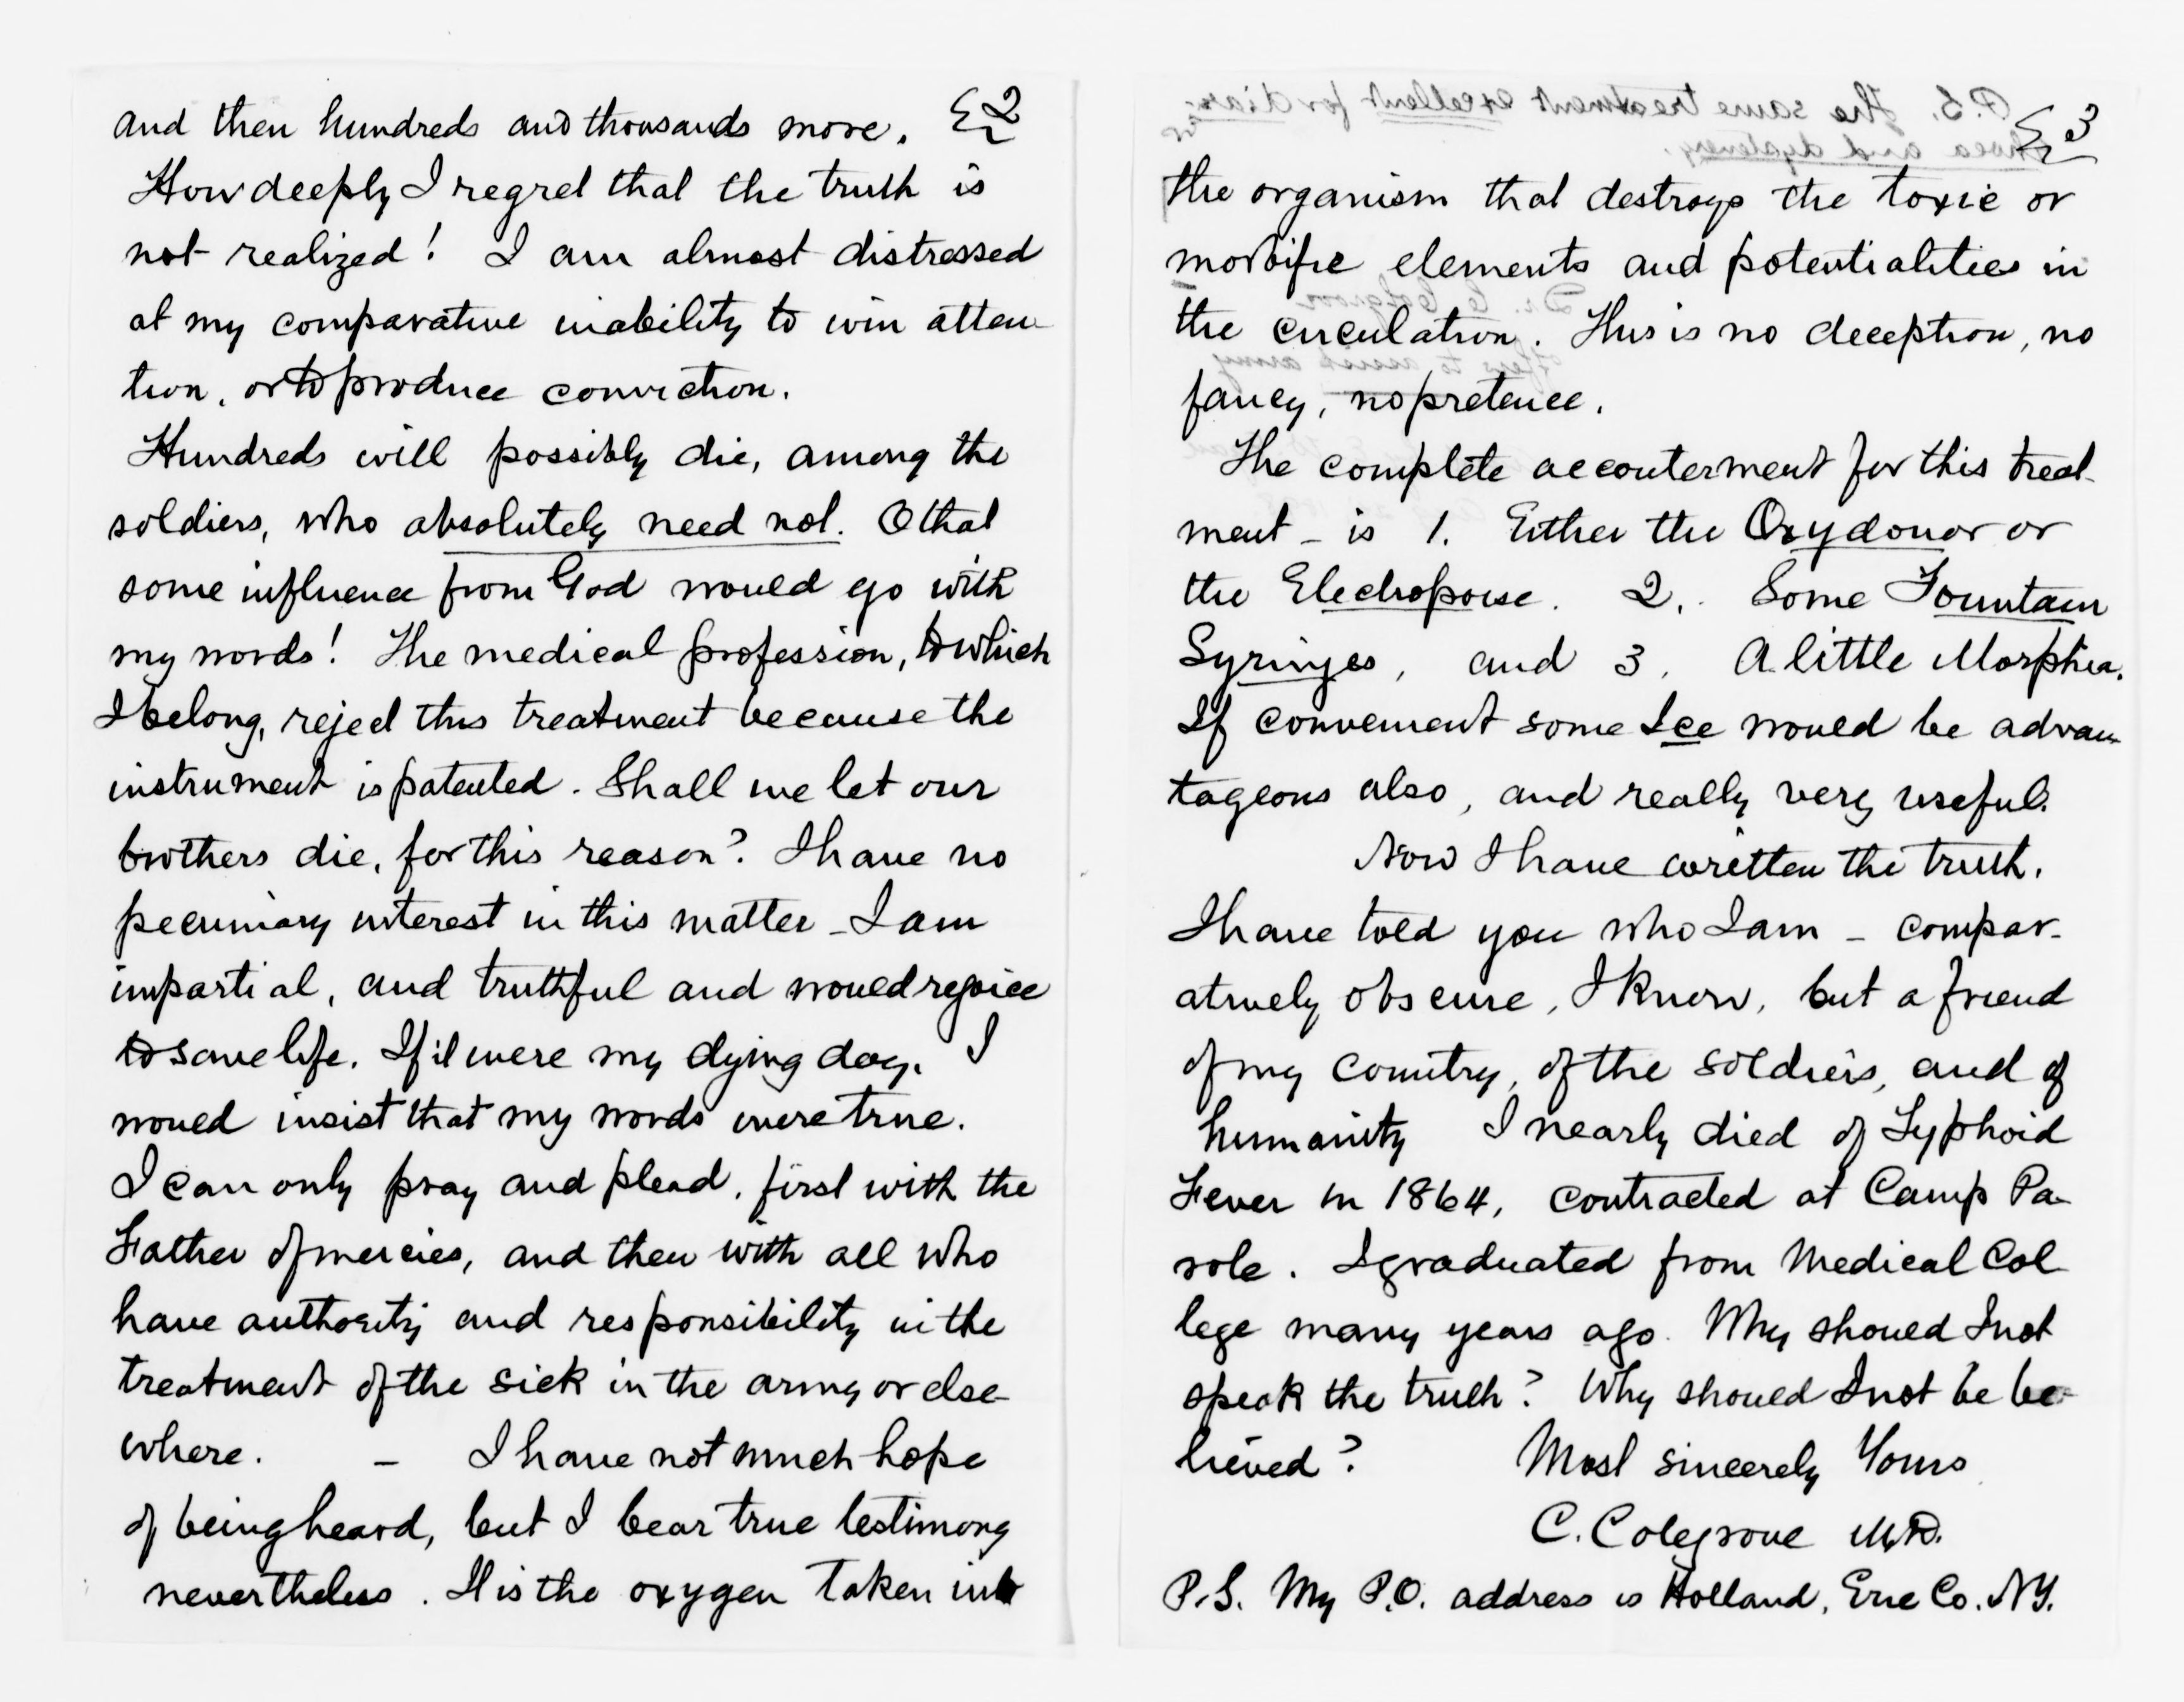 2
and then hundreds and thousands more.
How deeply I regret that the truth is
not realized! I am almost distressed
at my comparative inability to win atten-
tion, or to produce conviction.
Hundreds will possibly die, among the
soldiers, who absolutely need not. O that
some influence from God would go with
my words! The medical profession, to which
I belong, reject this treatment because the
instrument is patented. Shall we let our
brothers die, for this reason? I have no
pecuniary interest in this matter - I am
impartial, and truthful and would rejoice
to save life. If it were my dying day, I
would insist that my words were true.
I can only pray and plead, first with the
Father of mercies, and then with all who
have authority and responsibility in the
treatment of the sick in the army or else-
where. - I have not much hope
of being heard, but I bear true testimony
nevertheless. It is the oxygen taken into
3
P.S. The same treatment excellent for diarr-
hoea and dysentery.
the organism that destroys the toxic or
morbific elements and potentialities in
the circulation. This is no deception, no
fancy, no pretence.
The complete accouterment for this treat-
ment - is 1. Either the Oxydonor or
the Electropoise. 2. Some Fountain
Syringes, and 3. A little Morphia.
If convenient some Ice would be advan-
tageous also, and really very useful.
Now I have written the truth.
I have told you who I am - compar-
atively obscure, I know, but a friend
of my country, of the soldiers, and of
humanity I nearly died of Typhoid
Fever in 1864, contracted at Camp Pa-
role. I graduated from Medical Col
lege many years ago. Why should I not
speak the truth? Why should I not be be-
lieved? Most sincerely Yours
C. Colegrove M.D.
P.S. My P.O. address is Holland, Erie Co. NY.